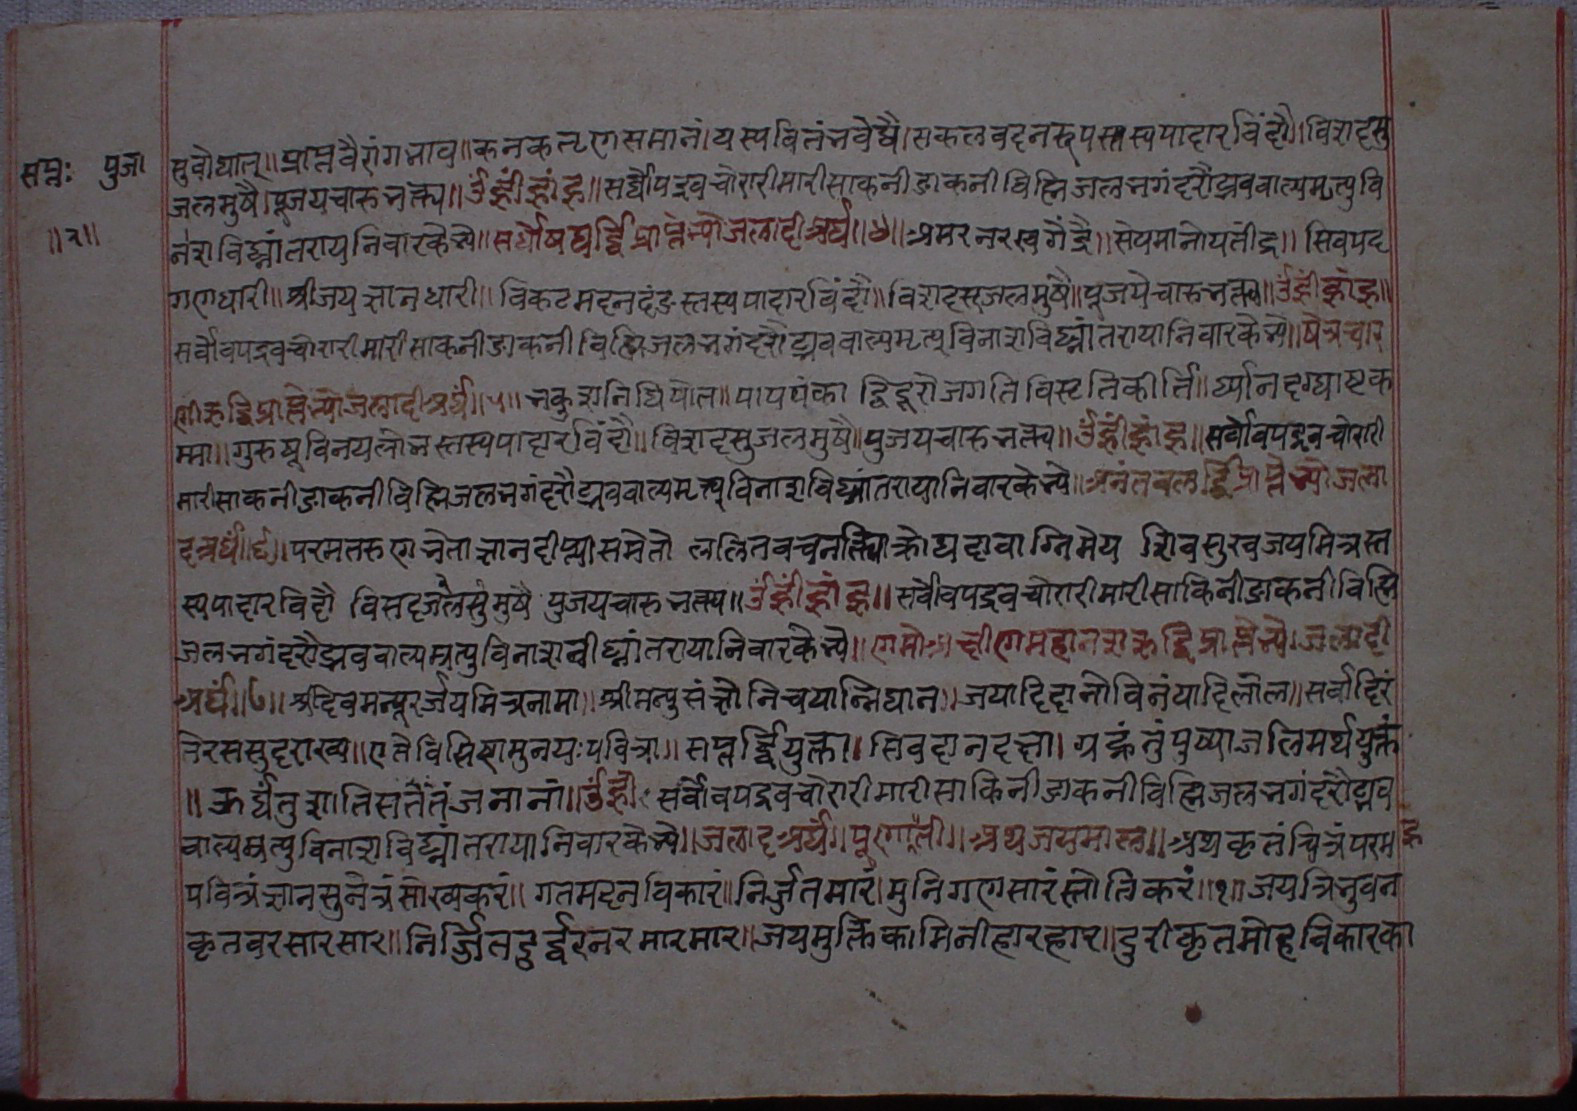 सप्त: पुजा
॥२॥
सुवोधात्॥ प्राप्तवैरांगभाव॥ कनकतृणसमानं। यस्यवितंनवेद्यै। सकलवदनरुपस्तस्यपादारविंदौ॥ विशदसु
जलमुषै। पूजयचारुभक्त्य॥ ॐह्रींह्रांह्र॥ सर्वोपद्रवचोरारीमारीसाकनीडाकनीविह्निजलभगंदरौद्भववात्यमृत्युवि
नाशविघ्नांतरायनिवारकैभ्यै॥ सर्वोषधर्द्धिप्राप्तेभ्योजलादीअर्घं॥४॥ अमरनरखगेंद्रै॥ सेयमानोयतींद्र॥ सिवपद
गणधारी॥ श्रीजयज्ञानधारी॥ विकटमदनदंडस्तस्यपादारविंदौ॥ विशदसुजलमुषै॥ पूजयेचारुभक्त्य॥ ॐह्रींह्रांह्र॥
सर्वोवपद्रवचोरारीमारीसाकनीडाकनीविह्निजलभगंदरौद्भववात्यमृत्युविनाशविघ्नांतरायानिवारकैभ्यै॥ षैत्रचार
णीऋद्धिप्राप्तेभ्योजलादीअर्घं॥५॥ भकुशनिधिपोत॥ पापपंका द्विदूरौजगतिविस्टतिकीर्ति॥ र्ध्यानदग्धाष्टक
म्मा॥ गुरुषूविनयलीनस्तस्यपादारविंदौ॥ विशदसुजलमुषै॥ पुजयचारुभक्त्य॥ ॐह्रींह्रांह्र॥ सर्वोवपद्रवचोरारी
मारीसाकनीडाकनीविह्निजलभगंदरौद्भववात्यमृत्युविनाशविघ्नांतरायानिवारकेभ्ये॥ अनंतबलर्द्धिप्राप्तेभ्योजला
दअर्घं॥६॥ परमतरुणचेताज्ञानदीप्त्यासमेतो ललितवचन क्रोधदावाग्निमेय शिवसुखजयमित्रस्त
स्यपादारविदौ विसदजलैसुंमुषै पुजयचारुभक्त्य॥ ॐह्रींह्रांह्र॥ सर्वोवपद्रवचोरारीमारीसाकिनीडाकनीविह्नि
जलभगंदरौद्भववात्यमृत्युविनाशवीघ्नांतरायानिवारकैभ्यै॥ णमोअ णमहानशऋद्धिप्राप्तेभ्यो। जलादी
अर्घं॥७॥ श्रीदेवमन्यूरजयमित्रनामा॥ श्रीमन्युसंज्ञोनिचयान्निधान॥ जयादिदानोविनयादिलील॥ सर्वादिरं
तेरससुदराख्य॥ एतेविसिष्टामुनयःपवित्रा॥ सप्तर्द्धियुक्ता। सिवदानदत्ता। यक्रंतुंपुष्पाजलिमर्थयुक्तं
॥ ऋद्यंतुशातिसततंजनानां॥ ॐह्रौ: सर्वोवपद्रवचोरारीमारीसाकिनीडाकनीविह्निजलभगंदरौद्भव
वात्यमृत्युविनाशविघ्नांतरायानिवारकैभ्यै॥ जलादअर्घं। पूर्णार्घं॥ अथजयमाल॥ अथकृतंचित्रंपरम
पवित्रंज्ञानसुनेत्रंसोख्यकरं॥ गतमदनविकारं॥ निर्जुतमारं। मुनिगणसारंस्तोतिकरं॥१॥ जयत्रिभुवन
कृतवरसारसार॥ निर्ज्जितदुर्द्धरनरमारमार॥ जयमुक्तिकामिनीहारहार॥ दुरीकृतमोहविकारका